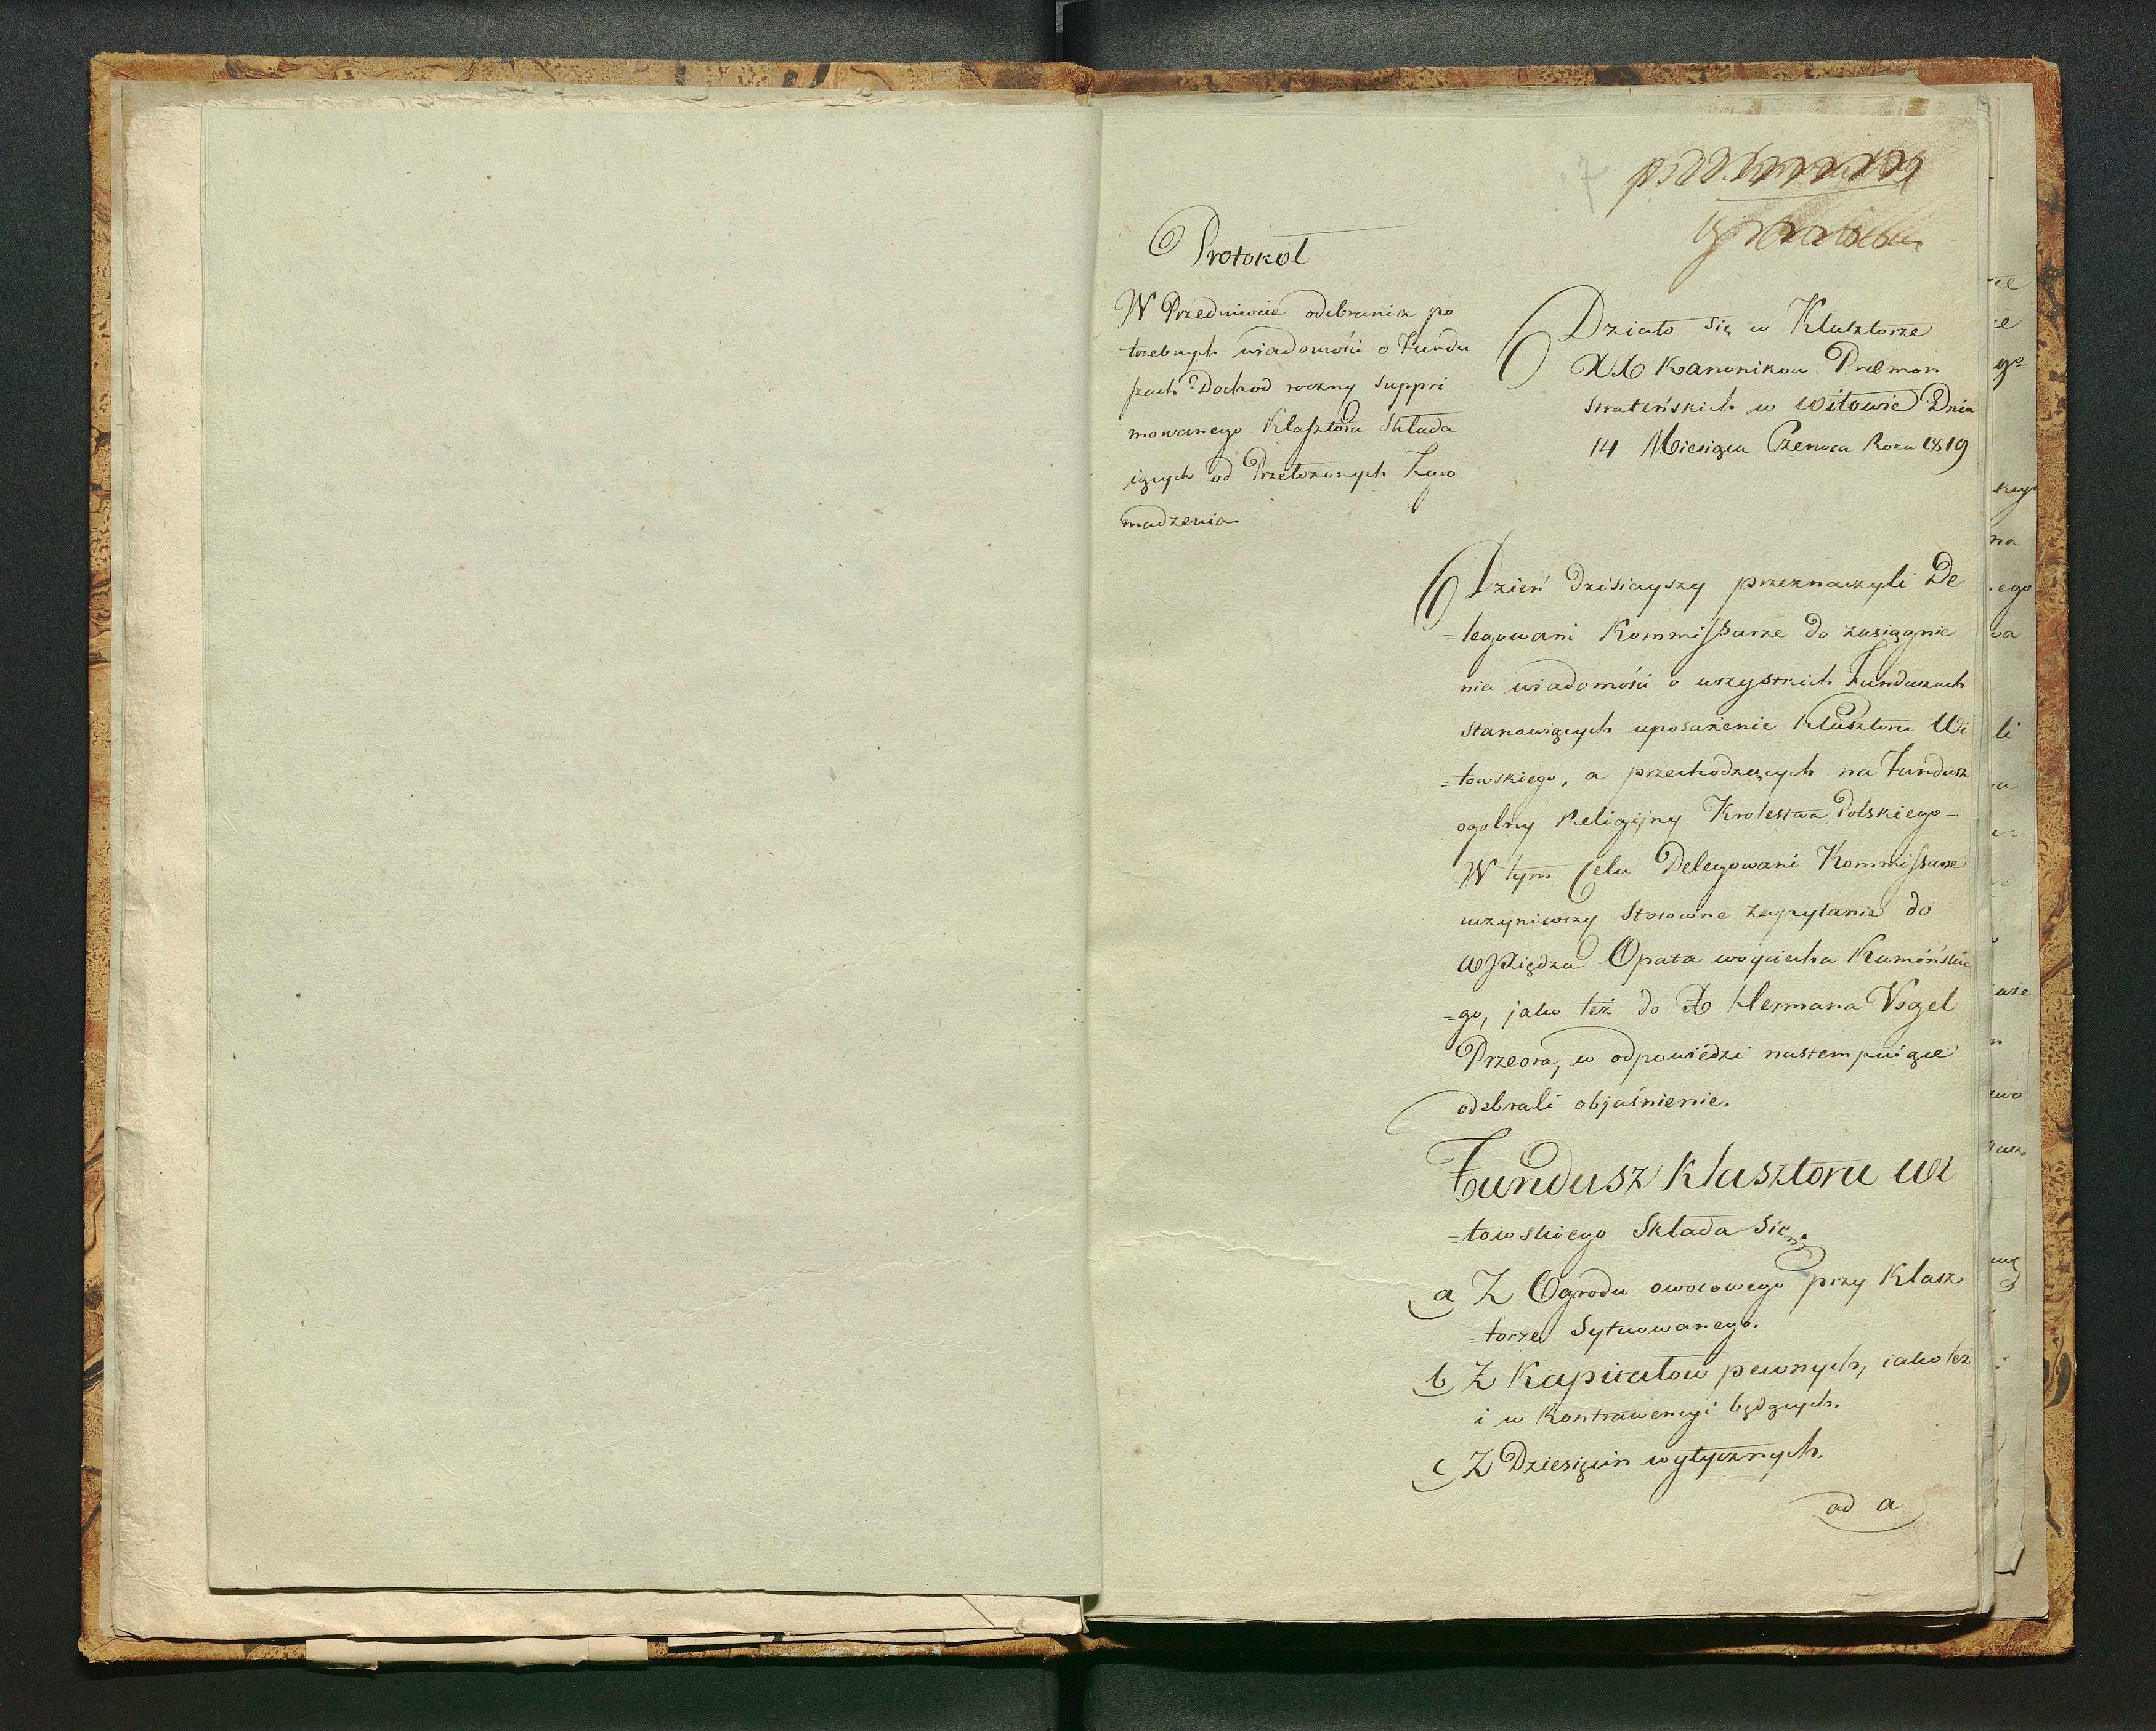 7
Protokoł
W Przedmiocie odebrania po
trzebnych wiadomości o Fundu
szach Dochod roczny suppri
mowanego Klasztoru składa
iących od Przełożonych Zgro
madzenia.
Działo się w Klasztorze
XX Kanonikow Præmon
strateńskich w Witowie Dnia
14 Miesiąca Czerwca Roku 1819
Dzień dzisieyszy przeznaczyli De
=legowani Kommissarze do zasiągnie
nia wiadomości o wszystkich Funduszach
stanowiących uposażenie Klasztoru Wi
=towskiego, a przechodzących na Fundusz
ogolny Religijny Krolestwa Polskiego-
W tym Celu Delegowani Kommissarze
uczyniwszy stosowne zapytanie do
W Xiędza Opata woyciecha Kamińskie
=go, jako też do X Hermana Vogel
Przeora, w odpowiedzi nastempuiące
odebrali objaśnienie.
Fundusz Klasztoru Wi
=towskiego Składa Się
a Z Ogrodu owocowego przy Klasz
=torze Sytuowanego.
b Z Kapitałow pewnych, iako też
i w Kontrawencyi będących.
c Z Dziesięcin wytycznych.
ad a